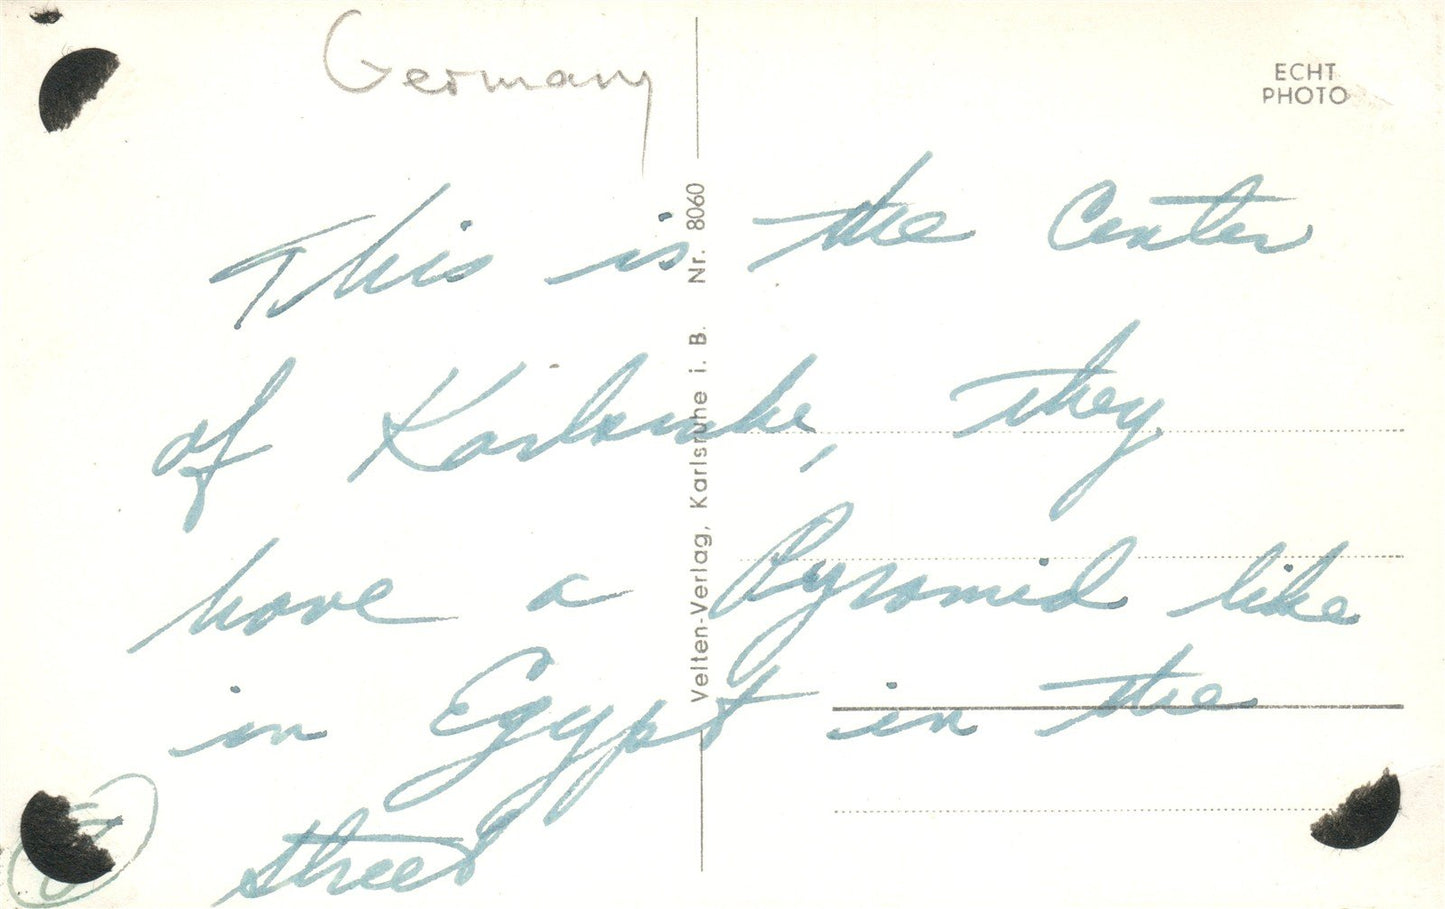 Germany
ECHT
PHOTO
This is the Center
of Karlsruhe, they
have a Pyramid like
in Egypt in the
street
Velten-Verlag, Karlsruhe i. B. Nr. 8060